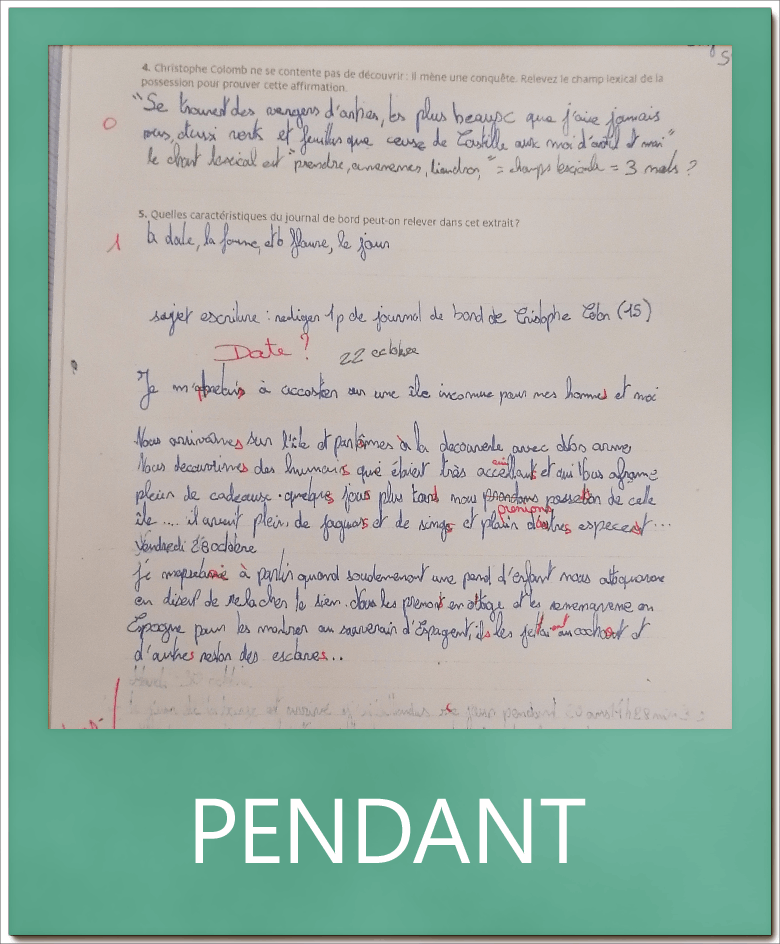 4. Christophe Colomb ne se contente pas de découvrir : il mène une conquête. Relevez le champ lexical de la
possession pour prouver cette affirmation.
"Se trouvent des vergers d'arbres, les plus beaux que j'aie jamais
0
vus, aussi verts et feuillus que ceux de Castille aux moi d'avril et mai"
le chant lexical est "prendre, " = champs lexicale = 3 mots ?
5. Quelles caractéristiques du journal de bord peut-on relever dans cet extrait?
1
la date, la forme, le jour
sujet escriture : rediger 1p de journal de bord de Cristophe Colon (15)
Date ? 22 octobre
Je m'apretais à accoster sur une île inconnue pour mes hommes et moi
Nous arrivames sur l'île et partîmes à la decouverte avec nos arme
Nous decouvrimes des humais que étaient très et qui
plein de cadeaux. quelques jours plus tard nous prenions de cete
île .... il avait plein de jaguars et de singes et plein d'autres especes...
Vendredi 28 octobre
Je à partir quand soudenement une d'enfant nous attaquerent
en de relacher le sien. Nous les en otage et les en
Espagne pour les montrer au souverain d'Espagne, ils les au cachot et
d'autres des esclaves..
PENDANT